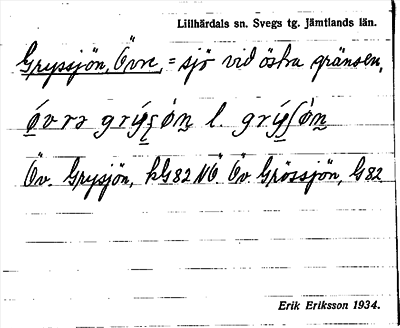 Lillhärdals sn. Svegs tg. Jämtlands län.
Gryssjön, Övre, = sjö vid östra gränsen,
óvrə grýʂón l. grýʃón
Öv. Grysjön, kG82 NÖ. Öv. Grössjön, G82
Erik Eriksson 1934.